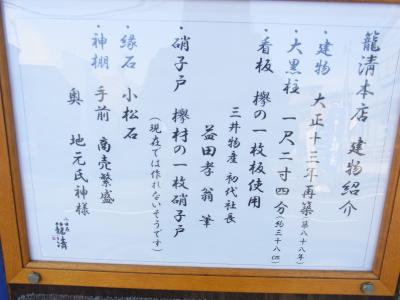 龍清本店 建物紹介
・建物 大正十三年再築(築八十八年)
・大黒柱 一尺二寸四分(約三十八㎝)
・看板 欅の一枚板使用
三井物産 初代社長
益田孝 翁 筆
・硝子戸 欅材の一枚硝子戸
(現在では作れないそうです)
・縁石 小松石
・神棚 手前 商売繁盛
奥 地元氏神様
龍清